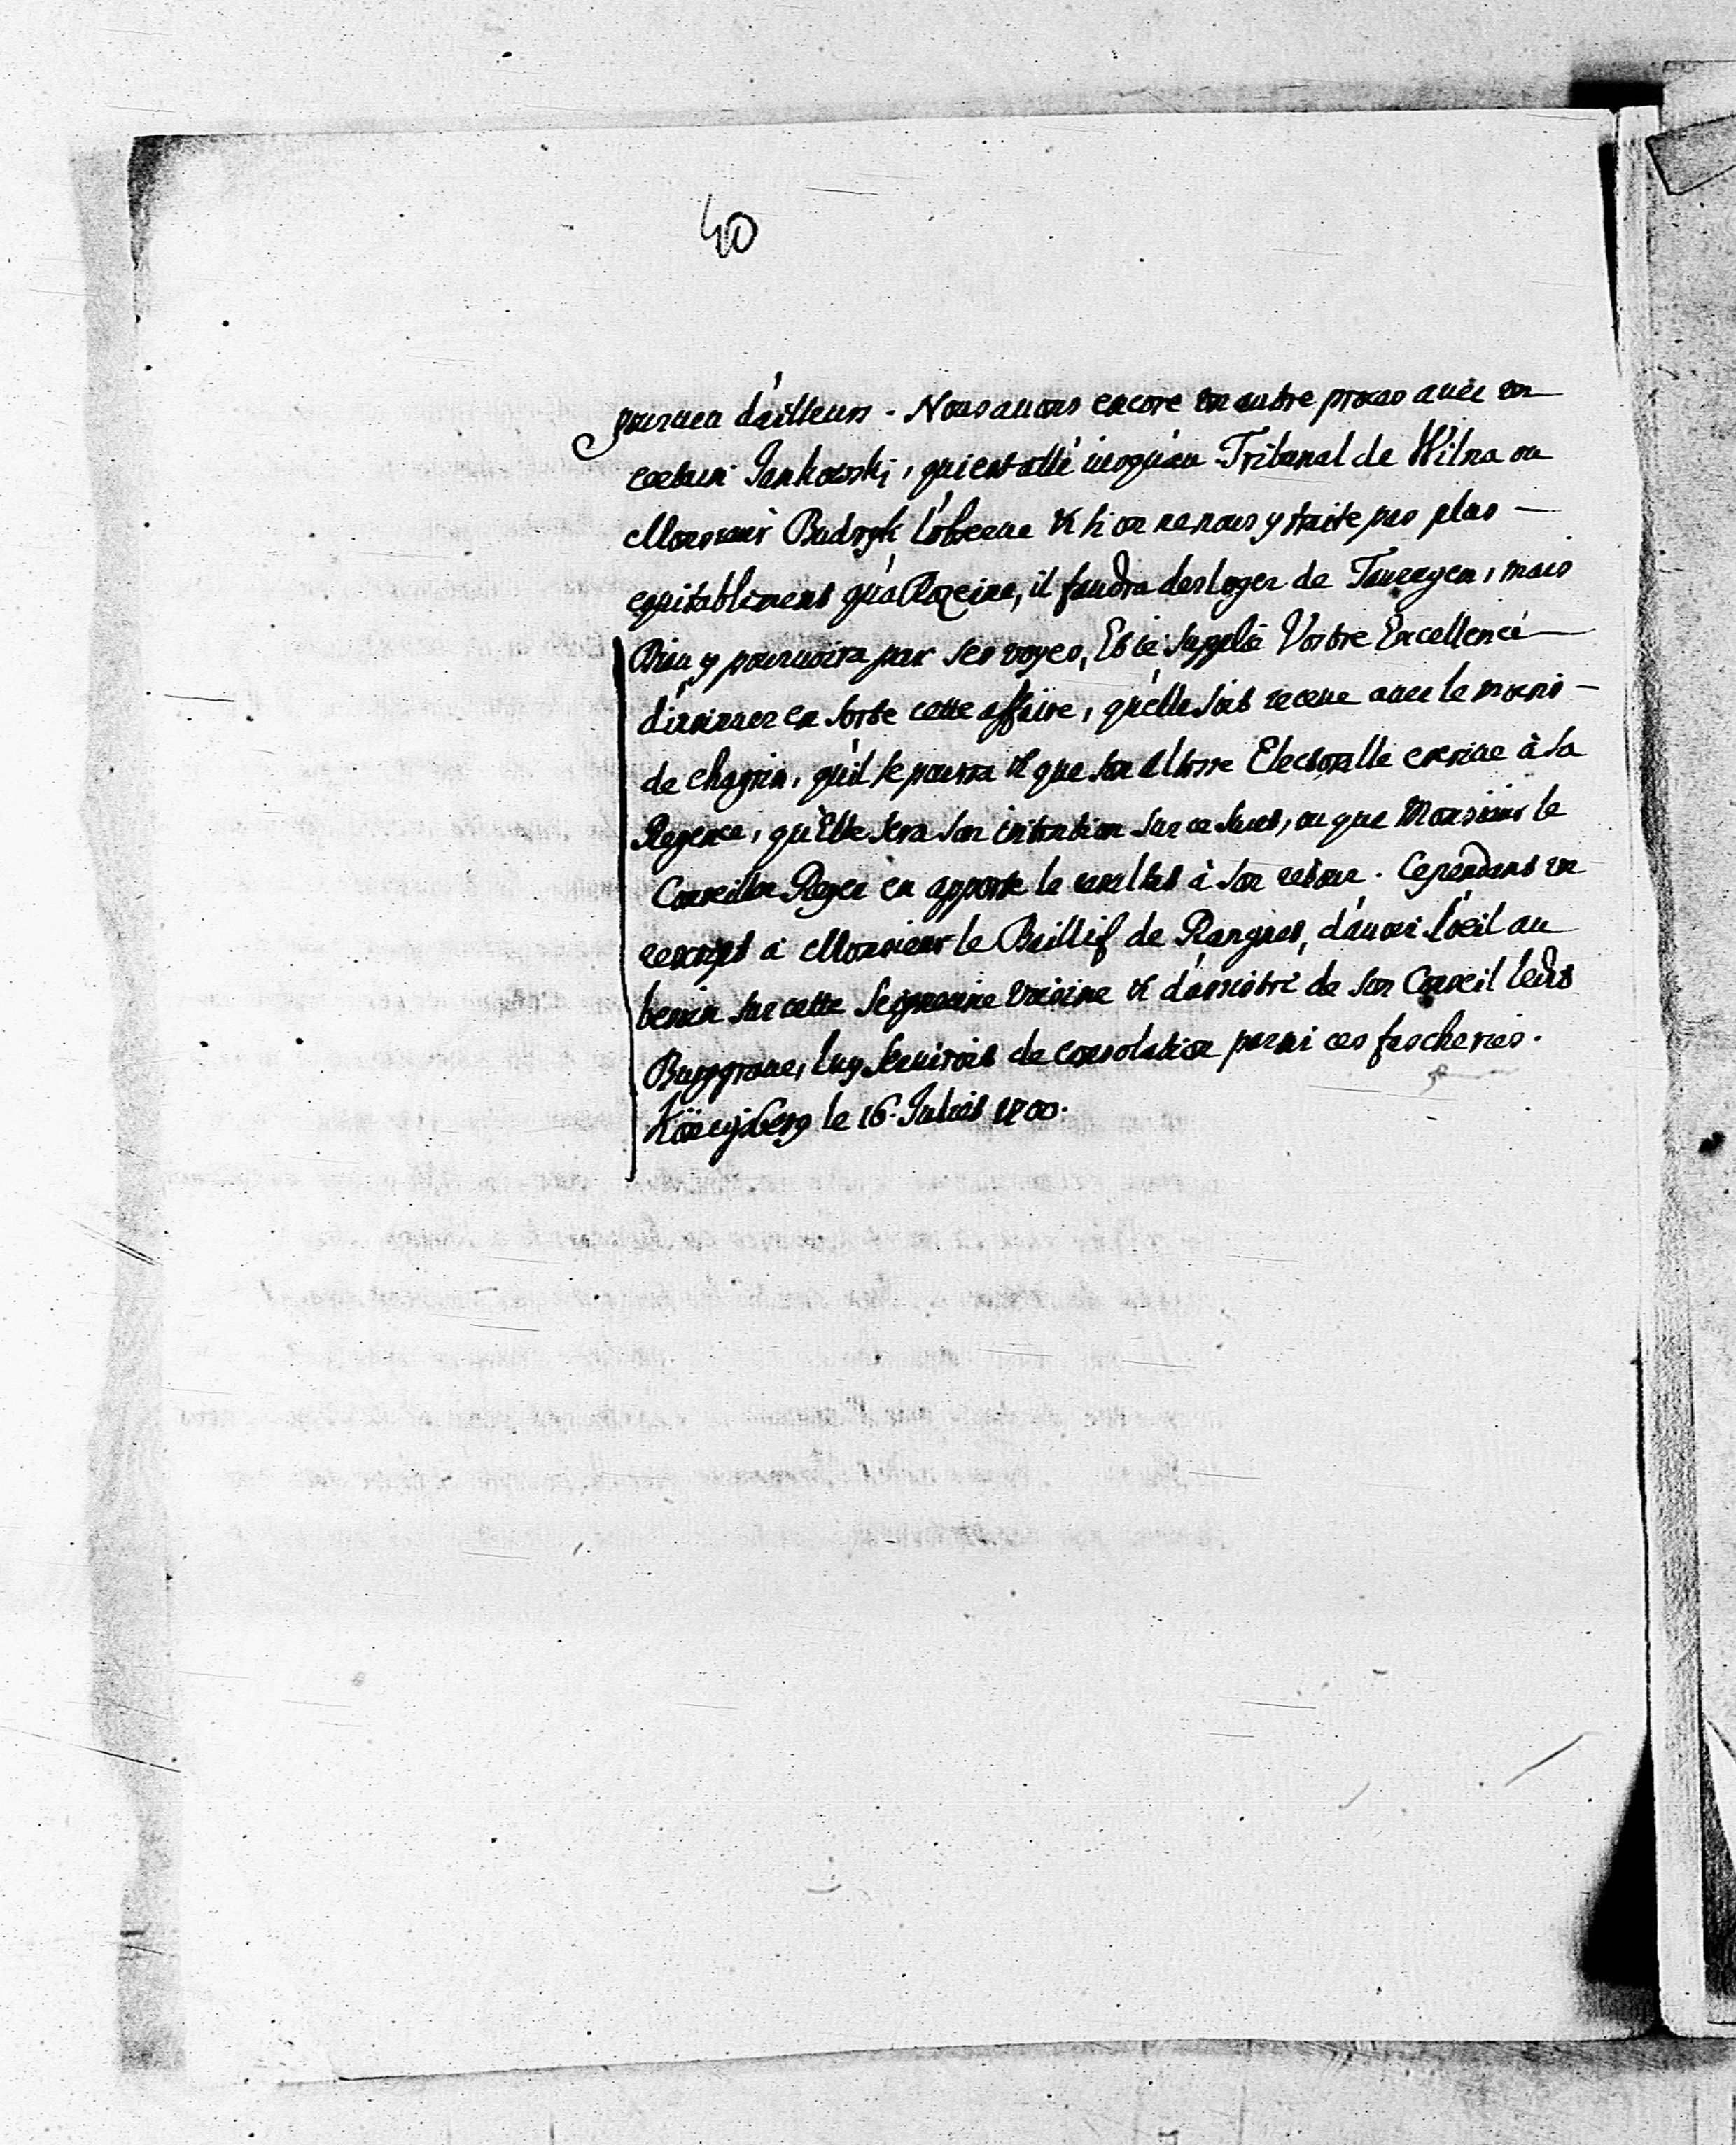 40
pourueu d'ailleurs. Nous auons encore vn autre proces auec vn
certain Jankowski, qui est allé iusqu'au Tribunal de Wilna ou
Monsieur Budryk l'obserue & si on ne nous y traite pas plus
equitablement qu'a Rozeine, il faudra desloger de Taurogen, mais
Dieu y pouruoira par ses voyes, Et ie supplie Vostre Excellence
d'insinuer en sorte cette affaire, qu'elle soit receue auec le moins
de chagrin, qu'il se pourra & que son Altesse Electoralle escriue à sa
Regence, qu'Elle sera son intention sur ce suiet, ou que Monsieur le
Conseiller Reyer en apporte le resultat à son retour. Cependant vn
rescript a Monsieur le Baillif de Rangnit, d'auoir l'oeil au
besoin sur cette Seigneurie voisine & d'assister de son Conseil ledit
Burggraue, luy seruiroit de consolation parmi ces fascheries.
Königsberg le 16. Juliet 1700.